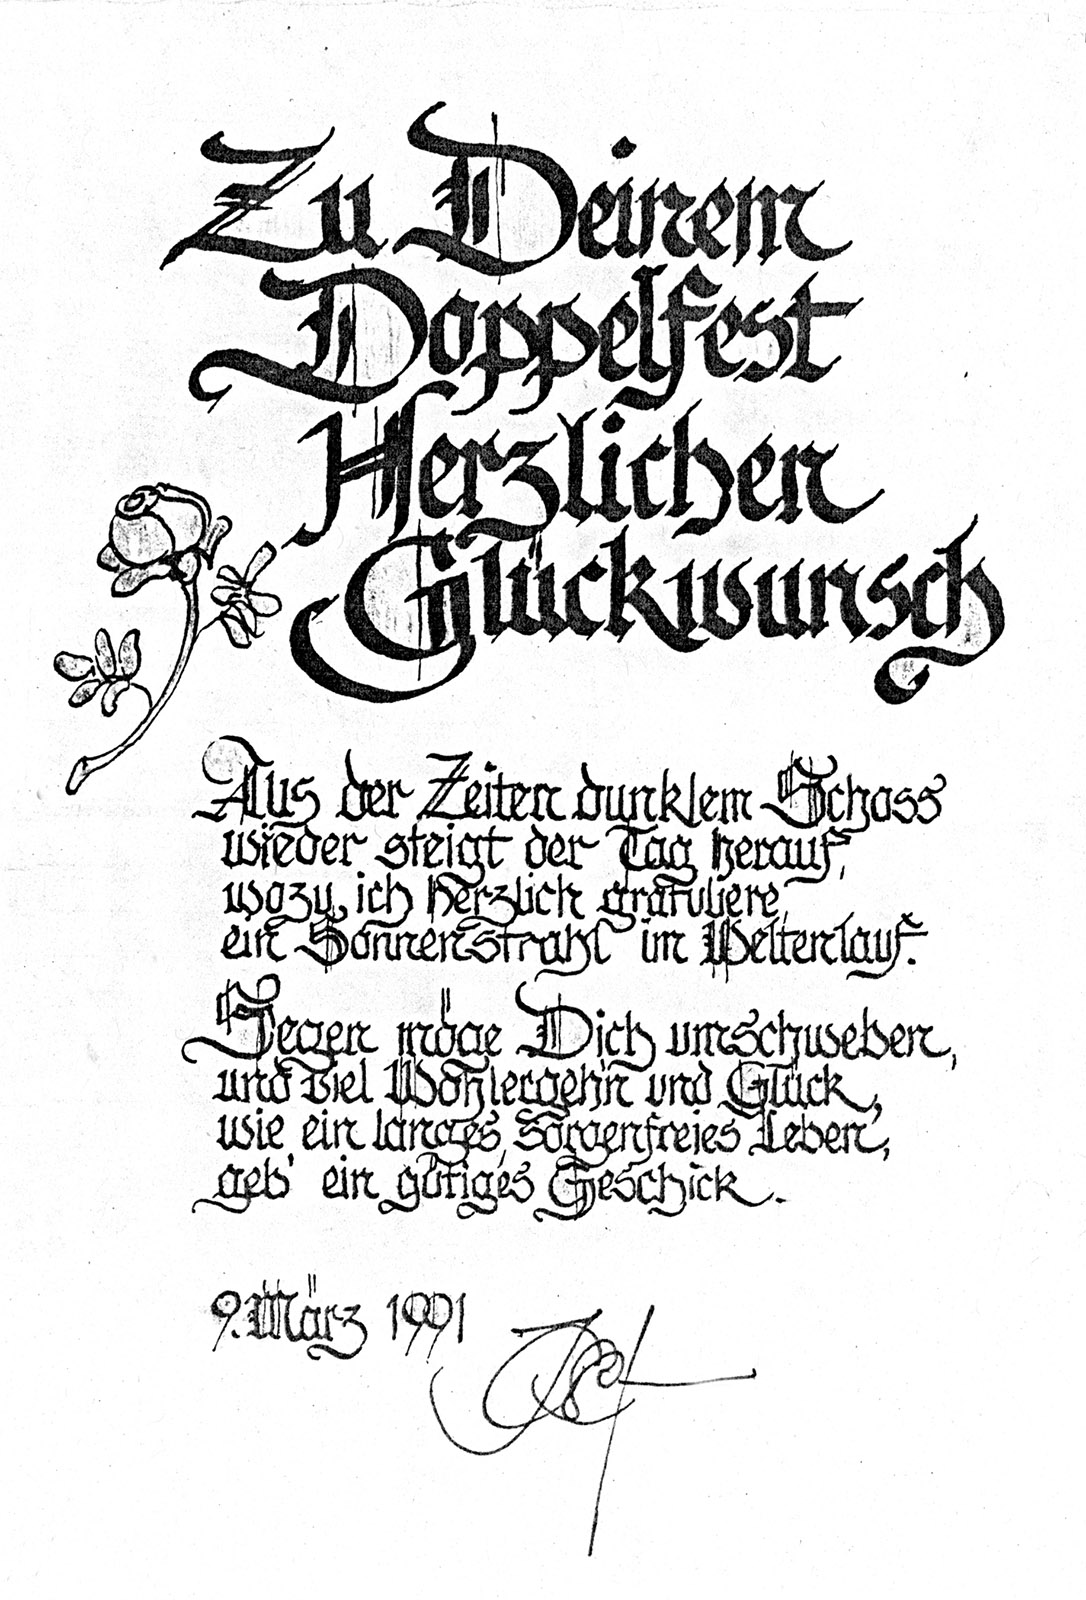 Zu Deinem
Doppelfest
Herzlichen
Glückwunsch
Aus der Zeiten dunklem Schoss
wieder steigt der Tag herauf,
wozu ich herzlich gratuliere,
ein Sonnenstrahl im Weltenlauf.
Segen möge Dich umschweben,
und viel Wohlergehn und Glück,
wie ein langes, sorgenfreies Leben,
geb' ein gütiges Geschick.
9. März 1991